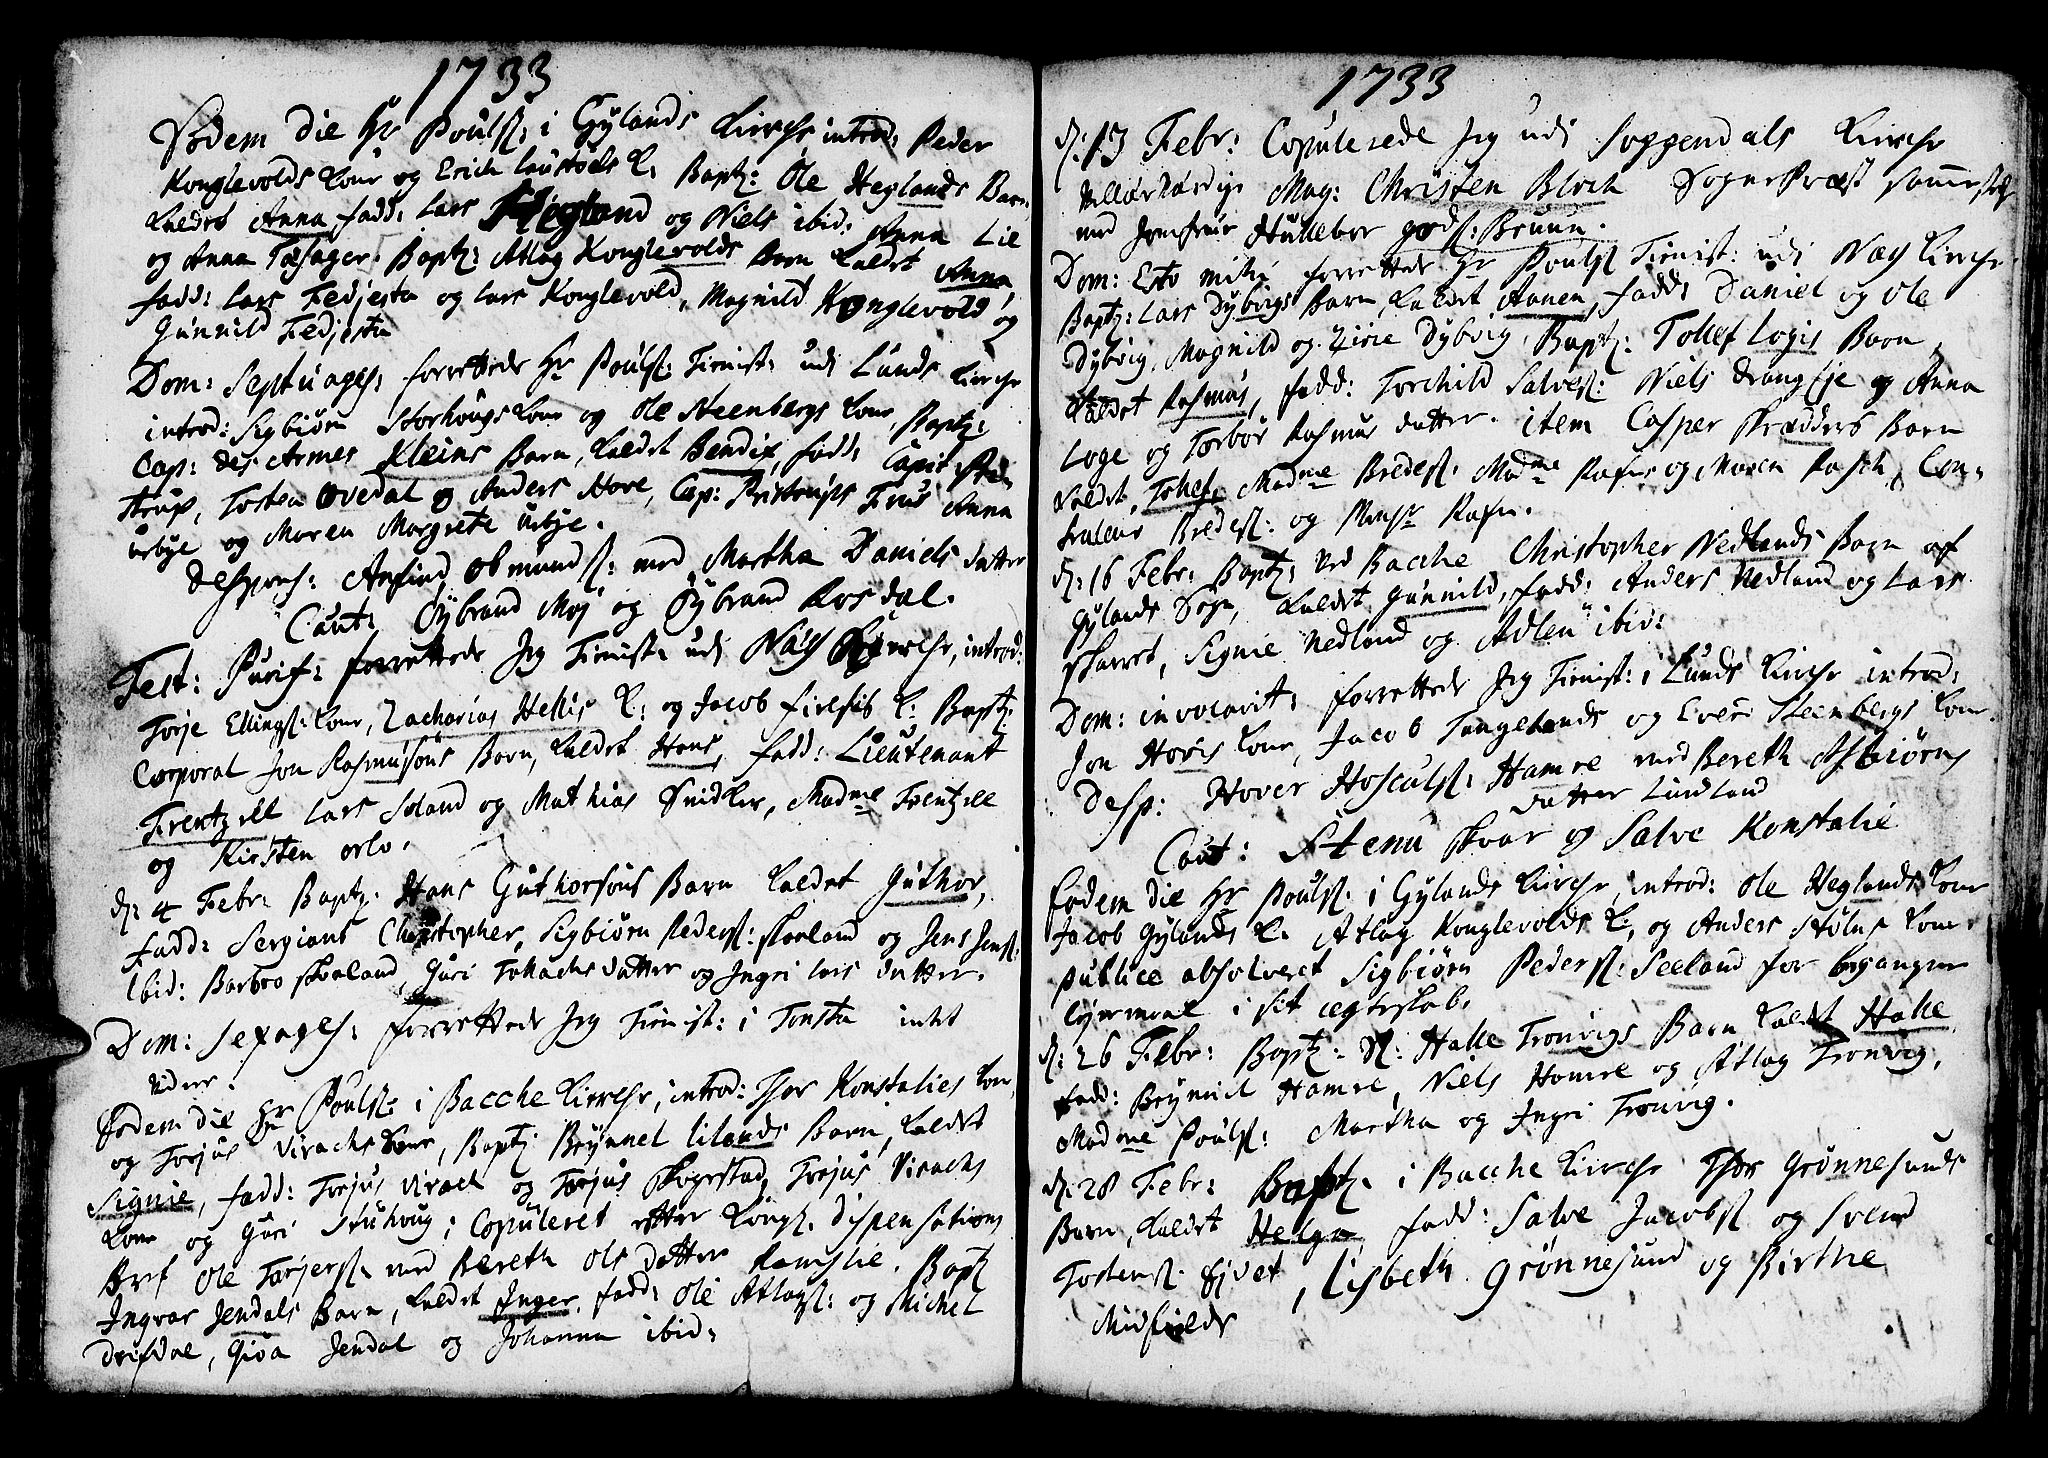 1733
Eodem die Hr Poulß: i Gylands Kirche, introd: Peder
Konglevolds Kone og Erich Lausteds K. Baptz: Ole Heglands Barn
kaldet Anna, fadd: Lars Hegland og Niels ibid: Anna Lie
og Anna Tæsager. Baptz: Atlag Konglevolds Barn kaldet Anna,
fadd: Lars Fedjesta og Lars Konglevold, Magnild Konglevold og
Gunnild Fedjesta
Dom: Septuages: forrettede Hr Poulß: Tienist: udi Lunds Kirche
introd: Sigbiørn Storhougs Kone og Ole Steenbergs Kone, Baptz:
Cap: des Armes Kleins Barn, kaldet Bendix, fadd: Capit
strup, Tosten Ovedal og Anders Hove, Cap: Pristrups Frue Anna
Urbye og Maren Margrete Urbye.
Despons: Anfind Obmundß: med Martha Daniels datter
Caut: Sybrand Moj og Sybrand Rosdal.
Fest: Purif: forrettede Jeg Tienist: udi Næs Kirche, introd:
Torje Ellingß: Kone, Zacharias Hellis K: og Jacob Firefib K: Baptz:
Corporal Jon Rasmusøns Barn, kaldet Hans, fadd: Lieutenant
Frentzell Lars Soland og Mathias Snidker, Madme Frentzell
og Kirsten Orlo.
d: 4 Febr: Baptz: Hans Guthorsøns Barn kaldet Guthor,
fadd: Sergiant Christopher, Sigbiørn Pederß: Skaaland og Jens Jensß:
ibid: Barbro Skaaland, Guri Tollachs datter og Ingri Lars datter.
Dom: Sexages: forrettede Jeg Tienist: i Tonsta intet
videre.
Eodem die Hr Poulß: i Bacche Kirche, introd: Thor Konstalies Kone,
og Torjus Virachs Kone, Baptz: Brynnel Lilands Barn, kaldet
Signie, fadd: Torjus Virach og Torjus Skogestad, Torjus Virachs
Kone og Guri Stuhoug; Copuleret etter Kongl: Dispensations
Bref Ole Torjerß: med Bereth Ols datter Ramslie. Baptz
Ingvar Jendals Barn, kaldet Inger, fadd: Ole Atlagß: og Michel
Drifdal, Giva Jendal og Johanna ibid:
1733
d: 13 Febr: Copulerede Jeg udi Soggendals Kirche
Velærværdige Mag: Christen Bloch SognePræst sammested
med Jomfrue Hilleber godß: Bruun.
Dom: Esto mihi forrettede Hr Poulß Tienist: udi Næs Kirche
Baptz: Lars Dybvigs Barn, kaldet Aanen, fadd: Daniel og Ole
Dybvig, Magnild og Zirie Dybvig. Baptz: Tollef Logis Barn,
kaldet Rasmus, fadd: Torchild Salveß: Niels Drangeje og Anna
Loge og Torbor Rasmus datter. item Casper Skrædders Barn
kaldet Tollef, Madme Bredeß: Madme Rafns og Maren Rasch, Con-
trolleur Bredeß: og Monsr Rafn.
d: 16 Febr: Baptz: Ved Bacche Christopher Nedlands Barn af
Gylands Sogn, kaldet Gunnild, fadd: Anders Nedland og Lars
Skarret, Signie Nedland og Adlen ibid:
Dom: invocavit: forrettede Jeg Tienist: i Lunds Kirche introd:
Jon Hovis Kone, Jacob Tangelands og Sveri Steenbergs Kone.
Desp: Hover Hosculß: Hamre med Bereth Asbiørns
datter Lindland
Caut: Stenu Skaar og Salve Konstalie
Eodem die Hr Poulß: i Gylands Kirche, introd: Ole Heglands Kone
Jacob Gylands K: Atlag Konglevolds K:, og Anders Stølus Kone
publice absolveret Sigbiørn Pederß: Seeland for begangen
Leiermaal i sit ægteskab.
d: 26 Febr: Baptz: Sl: Halle Tronvigs Barn kaldet Halle,
fadd: Brynild Hamre, Niels Hamre og Atlag Tronvig,
Madme Poulß: Martha og Ingri Tronvig.
d: 28 Febr: Baptz. i Bacche Kirche Thor Grønnesunds
Barn, kaldet Helga fadd: Salve Jacobß og Svend
Tostenß: Ejdet, Lisbeth Grønnesund og Birthe
Midfields